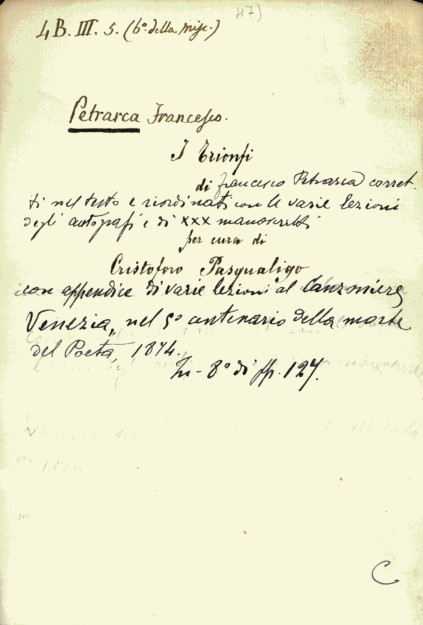 47)
4B. III. 5. (6ª della Misc.)
Petrarca Francesco.
I Trionfi
di Francesco Petrarca corret-
ti nel testo e riordinati con le varie lezioni
degli autografi e di XXX manoscritti
per cura di
Cristoforo Pasqualigo
con appendice di varie lezioni al Canzoniere
Venezia, nel 5º centenario della morte
del Poeta, 1874.
In-8º di pp. 127.
C